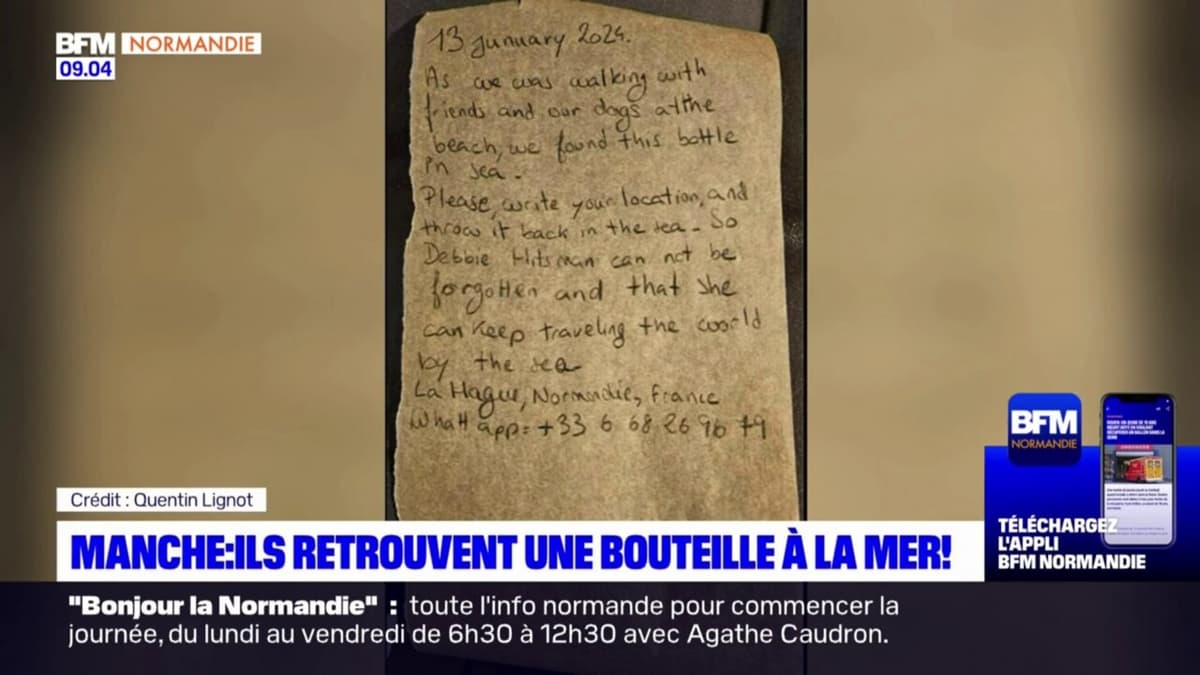 BFM NORMANDIE
09.04
13 junuary 2024.
As we was walking with
friends and our dogs at the
beach, we found this bottle
in sea.
Please, write your location, and
throw it back in the sea. So
Debbie Hitsman can not be
forgotten and that she
can keep traveling the world
by the sea
La Hague, Normandie, France
What app: +33 6 68 26 96 79
Crédit : Quentin Lignot
MANCHE:ILS RETROUVENT UNE BOUTEILLE À LA MER!
"Bonjour la Normandie" : toute l'info normande pour commencer la
journée, du lundi au vendredi de 6h30 à 12h30 avec Agathe Caudron.
BFM
NORMANDIE
TÉLÉCHARGEZ
L'APPLI
BFM NORMANDIE